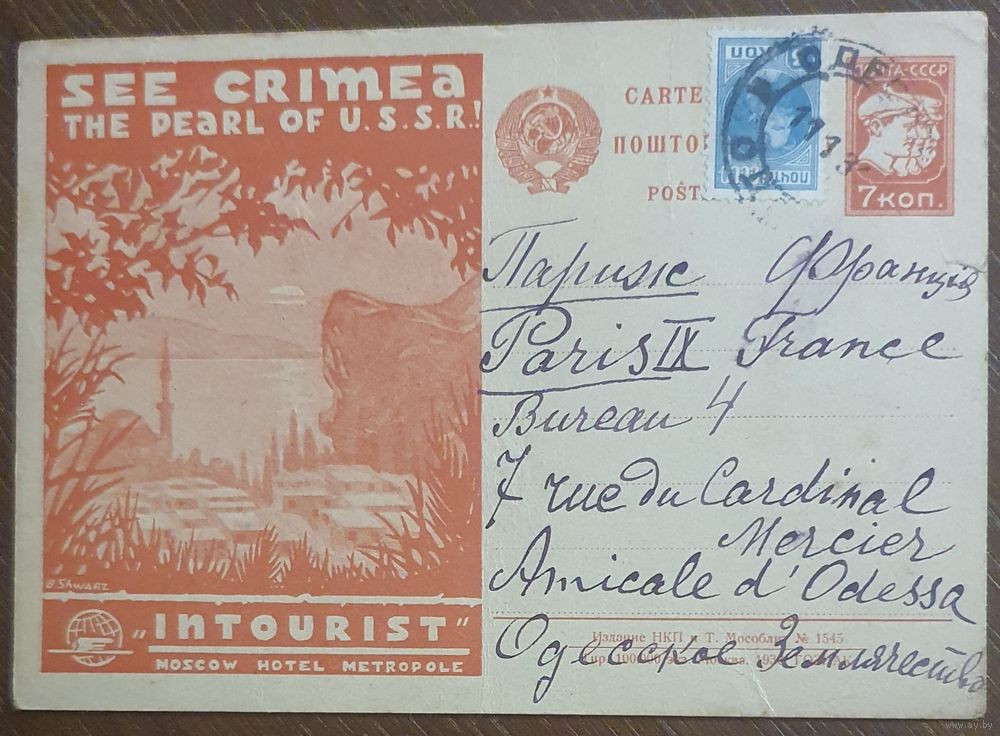 SEE CRIMEA
THE PEARL OF U.S.S.R.!
B SHWARZ
„INTOURIST"
MOSCOW HOTEL METROPOLE
CARTE
ПОШТО
POŜT
КОП
ПОЧТА
ОДЕ
ПОЧТА·СССР
7 КОП.
Париж Франція
Paris IX France
Bureau 4
7 rue du Cardinal
Mercier
Amicale d'Odessa
Издание НКП и Т. Мособлит. № 1545.
Одесское Землячество
Тир. 100.000 Москва. 193
www.ay.by